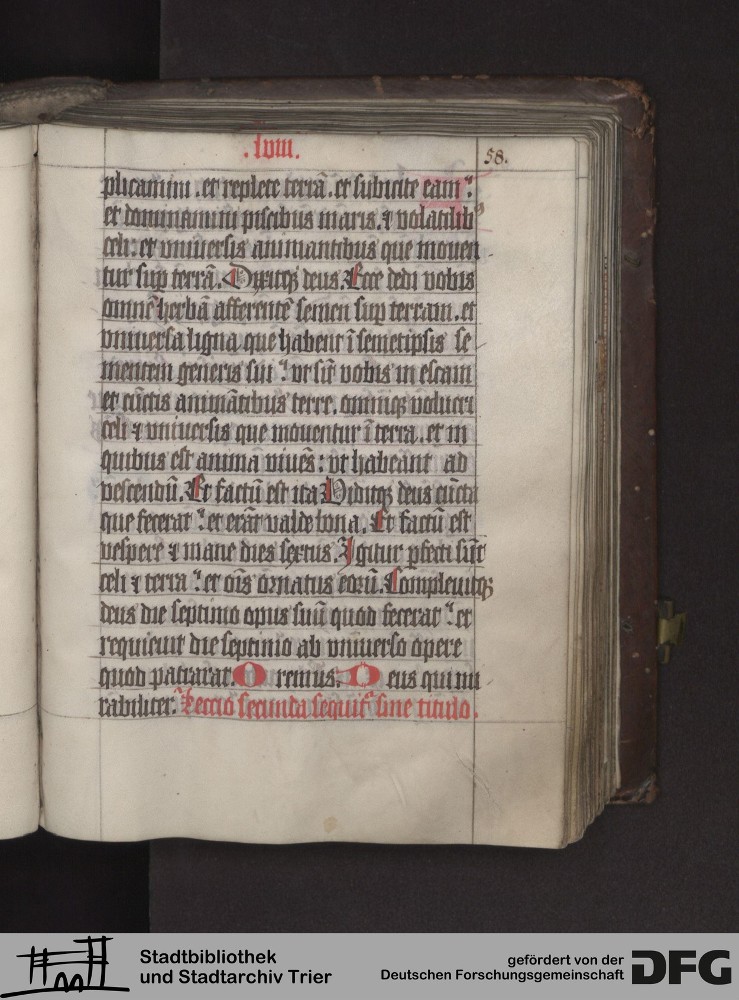 .lviii.
58.
plicamini . et replete terrā . et subicite eam :
et dominamini piscibus maris . ⁊ volatilibꝰ
celi : et vniuersis animantibus que mouen
tur suꝑ terrā . Dixitqꝫ deus . Ecce dedi vobis
omnē herbā afferentē semen suꝑ terram . et
vniuersa ligna que habent ī semetipsis se
mentem generis sui : vt sīt vobis in escam
et cūctis animātibus terre . omniqꝫ volucri
celi ⁊ vniuersis que mouentur ī terra . et in
quibus est anima viuēs : vt habeant ad
vescendū . Et factū est ita Viditqꝫ deus cūcta
que fecerat : et erāt valde bona . Et factū est
vespere ⁊ mane dies sextus . Igitur ꝑfecti sūt
celi ⁊ terra : et oīs ornatus eorū . Compleuitqꝫ
deus die septimo opus suū quod fecerat : et
requieuit die septimo ab vniuerso opere
quod patrarat . Oremus . Deus qui mi
rabiliter . Leccio secunda sequitᷣ sine titulo .
Stadtbibliothek
und Stadtarchiv Trier
gefördert von der
Deutschen Forschungsgemeinschaft
DFG